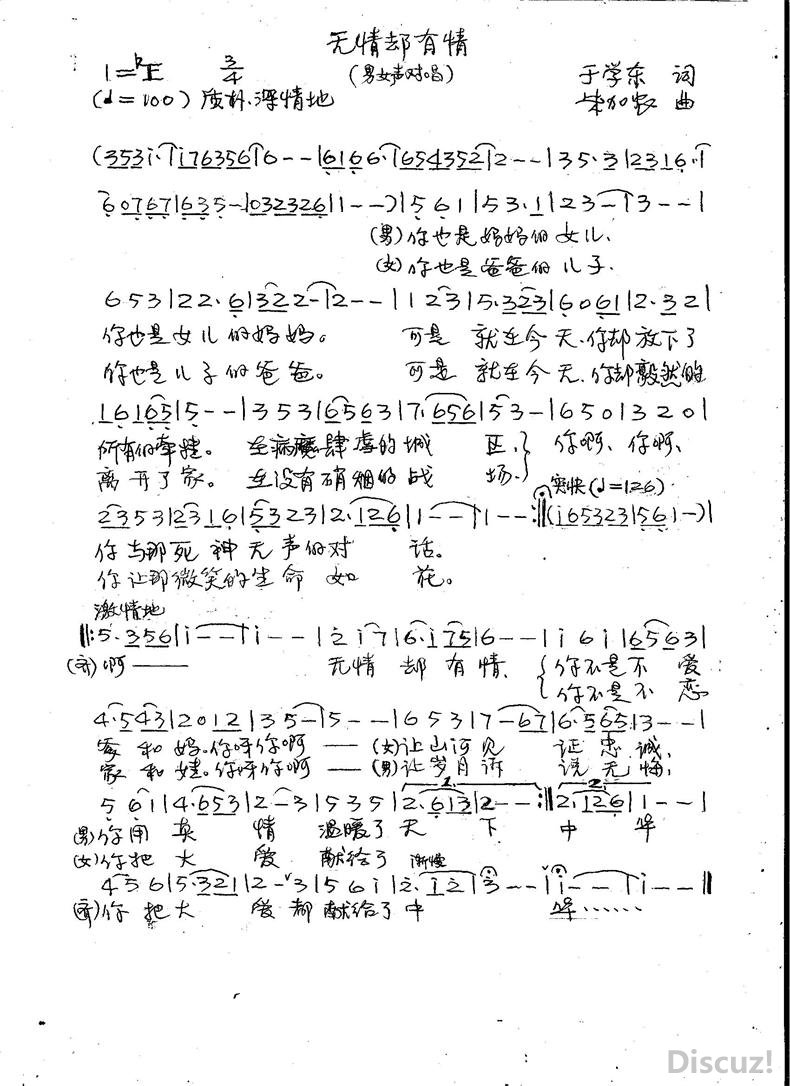 无情却有情
1=♭E 3/4 (男女声对唱) 于学东 词
(♩=100) 质朴、深情地 曲
(353i·|i76356|6--|6166·|654352|2--|35·3|2316·|
60767|635-|032326|1--)|561|53·1|23-|3--|
(男)你也是妈妈的女儿、
(女)你也是爸爸的儿子.
653|22·6|322-|2--|123|5·323|6061|2·32|
你也是女儿的妈妈。 可是 就在今天、你却放下了
你也是儿子的爸爸。 可是 就在今天、你却毅然的
16165|5--|353|6563|7·656|53-|650|320|
所有的牵挂。 在病魔肆虐的城 区、 你啊、你啊、
离开了家。 在没有硝烟的战 场、 爽快(♩=126)
2353|2316|5323|2·126|1--|1--:‖(i65323|561-)|
你与那死神无声的对 话。
你让那微笑的生命如 花。
激情地
‖:5·356|i--|i--|2i7|6·i75|6--|i6i|6563|
(齐)啊—— 无情却有情、 你不是不爱
你不是不恋
4·543|2012|35-|5--|653|7-67|6·565|3--|
爸和妈。你呀你啊——(女)让山河见 证忠诚、
家和娃。你呀你啊——(男)让岁月诉 说无悔、
1. 2.
561|4·653|2-3|535|2·613|2--:‖2·126|1--|
(男)你用真情温暖了天 下 中 华
(女)你把大爱献给了 渐慢
456|5·321|2-3|56i|2·i2|3--|i--|i--‖
(齐)你把大爱都献给了中 华……
Discuz!